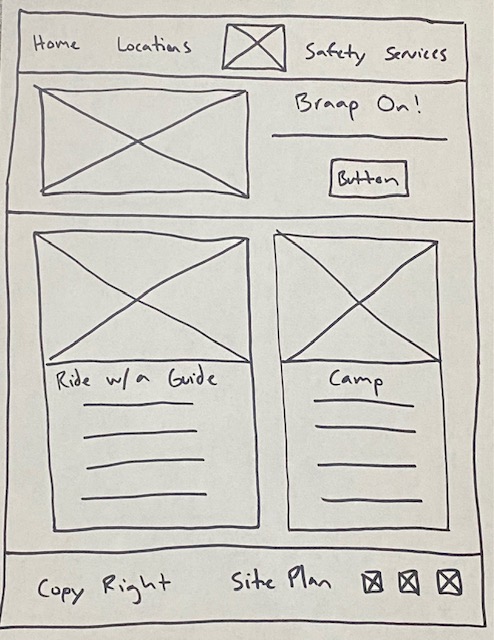 Home Locations Safety Services
Braap On!
Button
Ride w/a Guide
Camp
Copy Right Site Plan